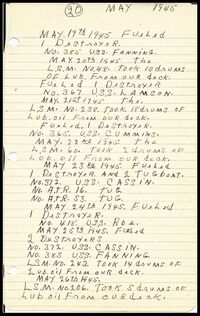 20 MAY 1945
MAY 19TH 1945 Fueled
1 Destroyer.
No. 385 USS. FANNING.
MAY 20TH 1945 the
L.S.M. No. 48. Took 10 drums
OF Lub. From our deck.
Fueled 1 Destroyer
No. 367 U.S.S. LAMSON.
MAY 21ST 1945 the.
L.S.M. No. 238. Took 18 drums OF
Lub oil From our deck.
Fueled, 1 Destroyer.
No. 365. U.S.S. CUMMINS.
MAY 22nd 1945 the
L.S.M. No. 60. Took 2 drums OF
Lub oil From our deck.
MAY 23rd 1945 Fueled
1 Destroyer And 2 TUG boat.
No. 372. U.S.S. CASSIN.
No. A.T.R. 16. TUG.
No. A.T.R. 53. TUG.
MAY 24TH 1945. Fueled
1 Destroyer.
No. U.S.S. ROE.
MAY 25TH 1945. Fueled
2 Destroyers
No. 372. U.S.S. CASSIN.
No. 385 U.S.S. FANNING.
L.S.M. No. 242. Took 14 drums OF
Lub oil From our deck.
MAY 26TH 1945.
L.S.M. No. 206. Took 5 drums OF
Lub oil From our deck.